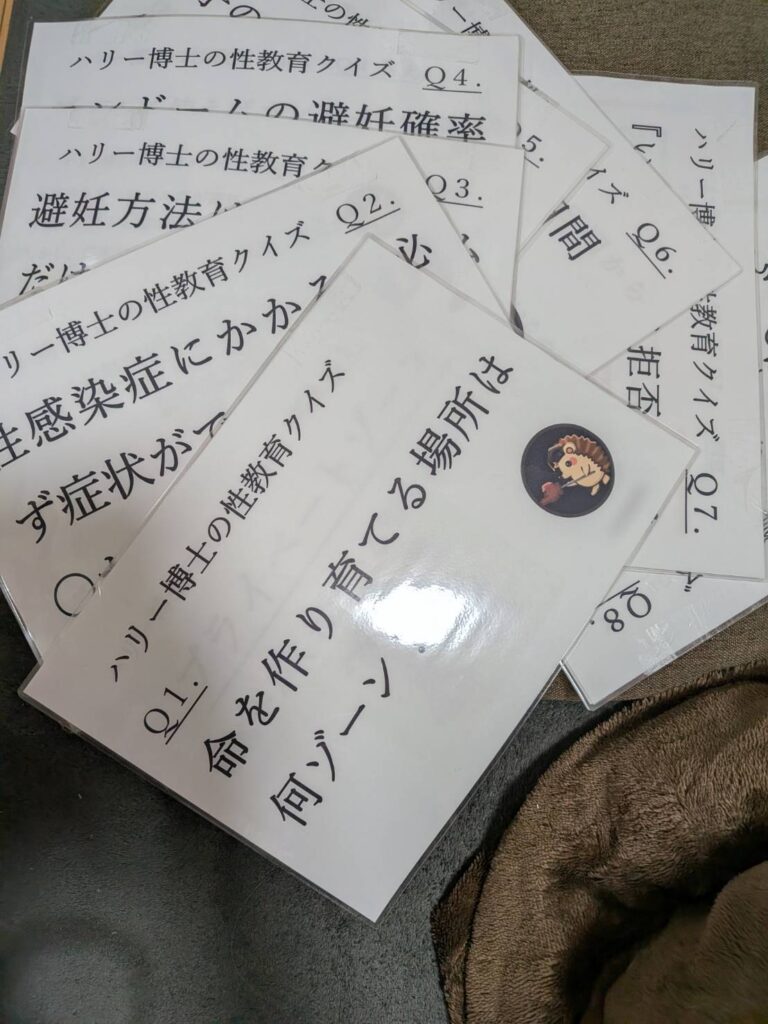 ハリー博士の性教育クイズ
Q1.
命を作り育てる場所は
何ゾーン
ハリー博士の性教育クイズ Q2.
性感染症にかかる 必
ず症状がで
ハリー博士の性教育ク Q3.
避妊方法は
だけ
ハリー博士の性教育クイズ Q4.
コンドームの避妊確率
Q5.
イズ Q6.
間
ハリー博 教育クイズ Q7.
『い 拒否
Q8.